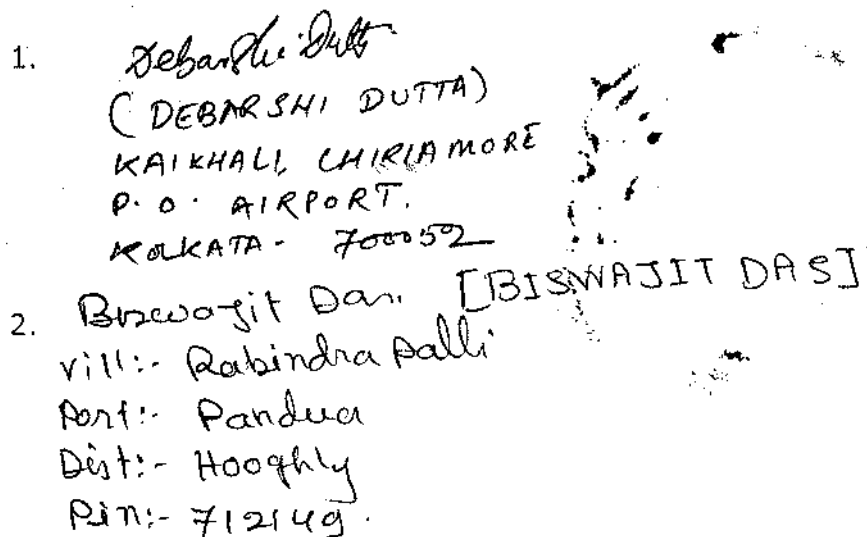 1. Debarshi Dutta
(DEBARSHI DUTTA)
KAIKHALI, CHIRIAMORE
P.O. AIRPORT.
KOLKATA - 700052
2. Biswajit Das. [BISWAJIT DAS]
Vill:- Rabindra Palli
Post:- Pandua
Dist:- Hooghly
Pin:- 712149.